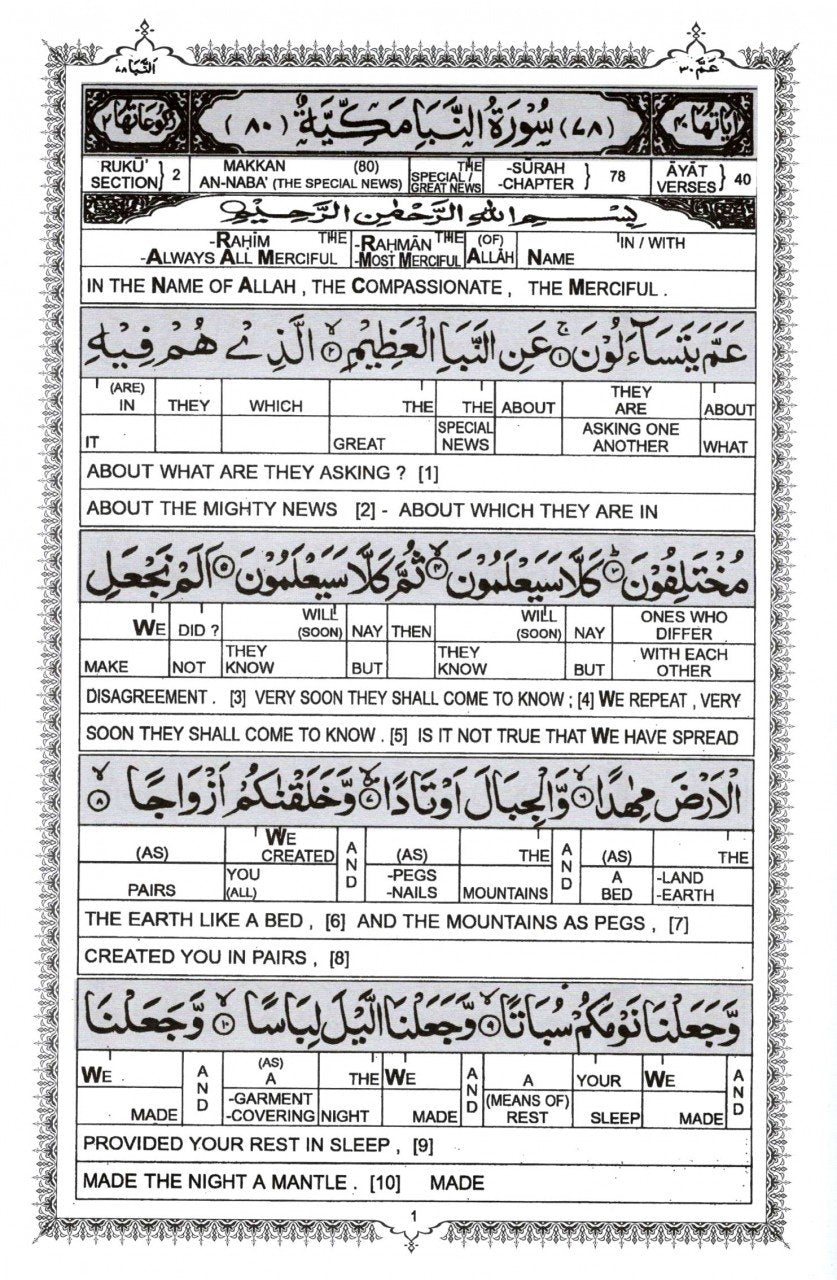 النبا ٧٨
عم ٣٠
اياتها ٤٠ (٧٨) سُوْرَةُ النَّبَاِ مَكِّيَّةٌ (٨٠) ركوعاتها ٢
RUKŪ' SECTION} 2 MAKKAN (80) AN-NABA' (THE SPECIAL NEWS) THE SPECIAL / GREAT NEWS -SŪRAH -CHAPTER } 78 ĀYĀT VERSES } 40
بِسْمِ اللهِ الرَّحْمٰنِ الرَّحِيْمِ
-RAḤĪM THE -RAḤMĀN THE (OF) IN / WITH
-ALWAYS ALL MERCIFUL -MOST MERCIFUL ALLĀH NAME
IN THE NAME OF ALLAH , THE COMPASSIONATE , THE MERCIFUL .
عَمَّ يَتَسَآءَلُوْنَ ۚ ١ عَنِ النَّبَاِ الْعَظِيْمِ ۙ ٢ الَّذِيْ هُمْ فِيْهِ
(ARE) IN THEY WHICH THE THE ABOUT THEY ARE ABOUT
IT GREAT SPECIAL NEWS ASKING ONE ANOTHER WHAT
ABOUT WHAT ARE THEY ASKING ? [1]
ABOUT THE MIGHTY NEWS [2] - ABOUT WHICH THEY ARE IN
مُخْتَلِفُوْنَ ؕ ٣ كَلَّا سَيَعْلَمُوْنَ ۙ ٤ ثُمَّ كَلَّا سَيَعْلَمُوْنَ ٥ اَلَمْ نَجْعَلِ
WE DID ? WILL (SOON) NAY THEN WILL (SOON) NAY ONES WHO DIFFER
MAKE NOT THEY KNOW BUT THEY KNOW BUT WITH EACH OTHER
DISAGREEMENT . [3] VERY SOON THEY SHALL COME TO KNOW ; [4] WE REPEAT , VERY
SOON THEY SHALL COME TO KNOW . [5] IS IT NOT TRUE THAT WE HAVE SPREAD
الْاَرْضَ مِهٰدًا ۙ ٦ وَّالْجِبَالَ اَوْتَادًا ۙ ٧ وَّخَلَقْنٰكُمْ اَزْوَاجًا ۙ ٨
(AS) WE CREATED AND (AS) THE AND (AS) THE
PAIRS YOU (ALL) -PEGS -NAILS MOUNTAINS A BED -LAND -EARTH
THE EARTH LIKE A BED , [6] AND THE MOUNTAINS AS PEGS , [7]
CREATED YOU IN PAIRS , [8]
وَّجَعَلْنَا نَوْمَكُمْ سُبَاتًا ۙ ٩ وَّجَعَلْنَا الَّيْلَ لِبَاسًا ۙ ١٠ وَّجَعَلْنَا
WE AND (AS) A THE WE AND A YOUR WE AND
MADE -GARMENT -COVERING NIGHT MADE (MEANS OF) REST SLEEP MADE
PROVIDED YOUR REST IN SLEEP , [9]
MADE THE NIGHT A MANTLE . [10] MADE
1